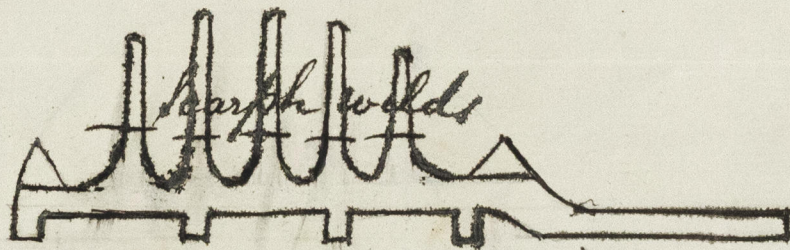 Scarph welds